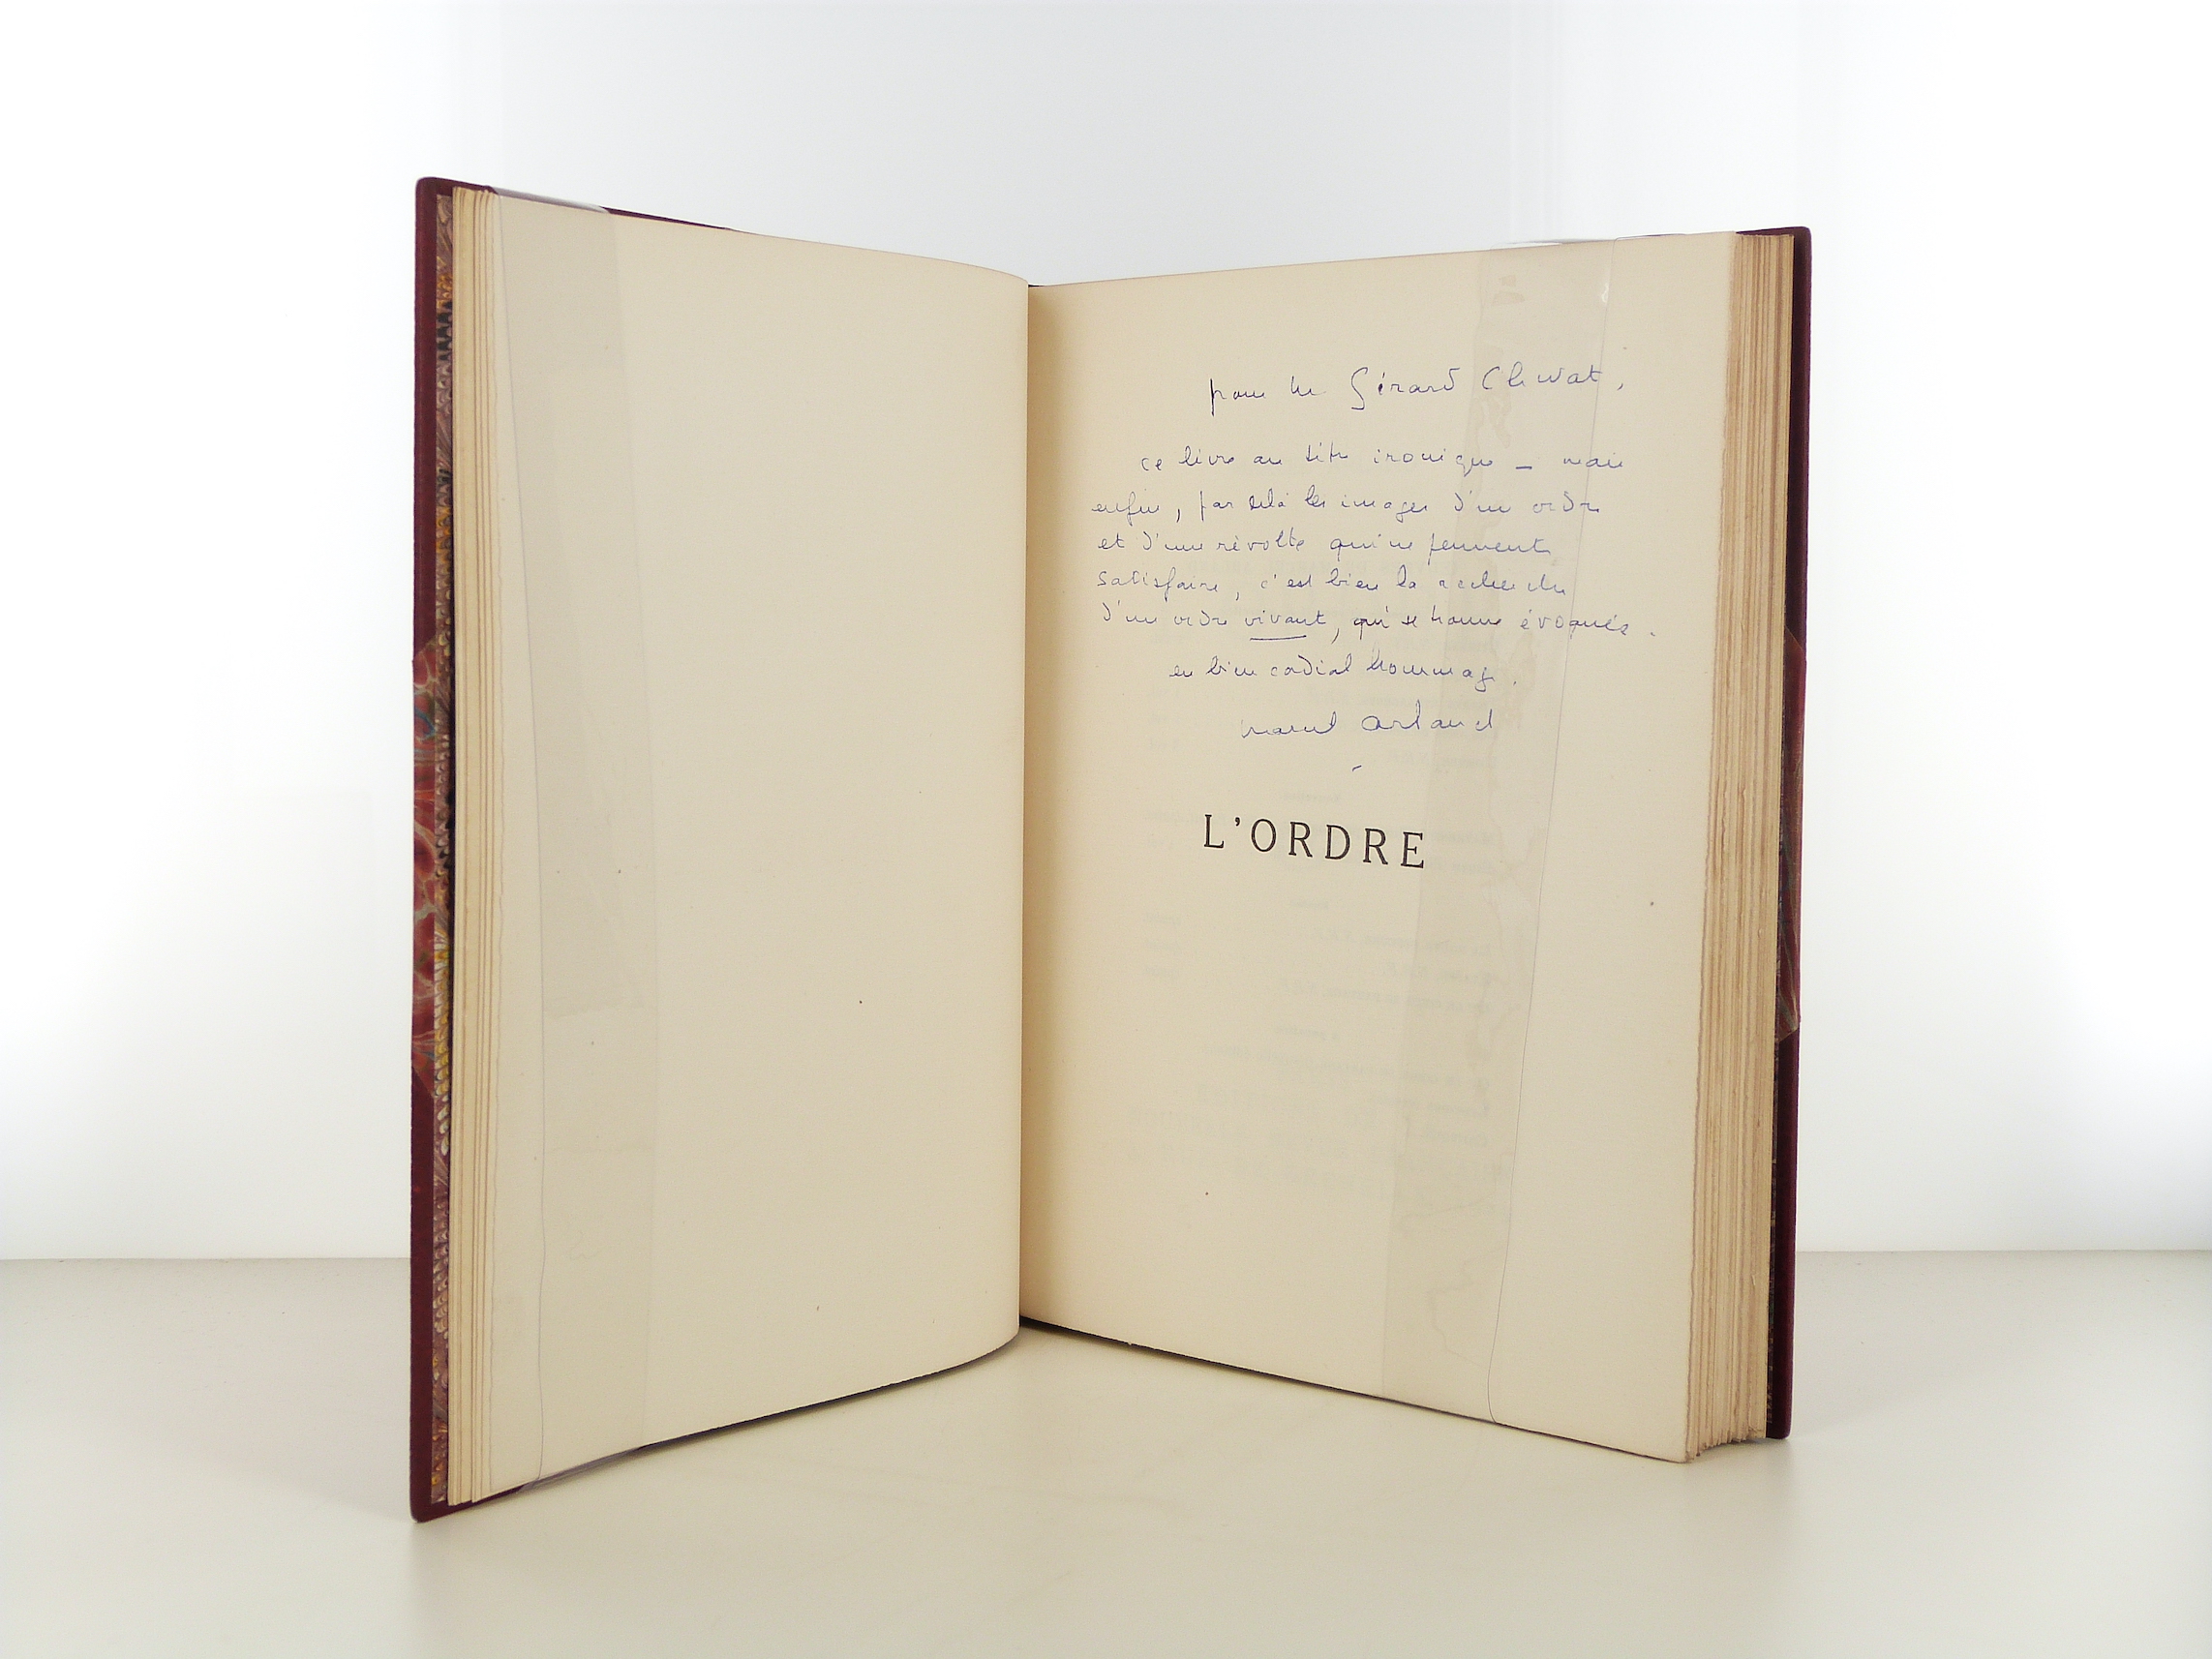 pour M. Gérard Chwat,
ce livre au titre ironique – mais
enfin, par delà les images d'un ordre
et d'une révolte qui ne peuvent
satisfaire, c'est bien la recherche
d'un ordre vivant, qui se trouve évoquée.
en bien cordial hommage.
Marcel Arland
L'ORDRE